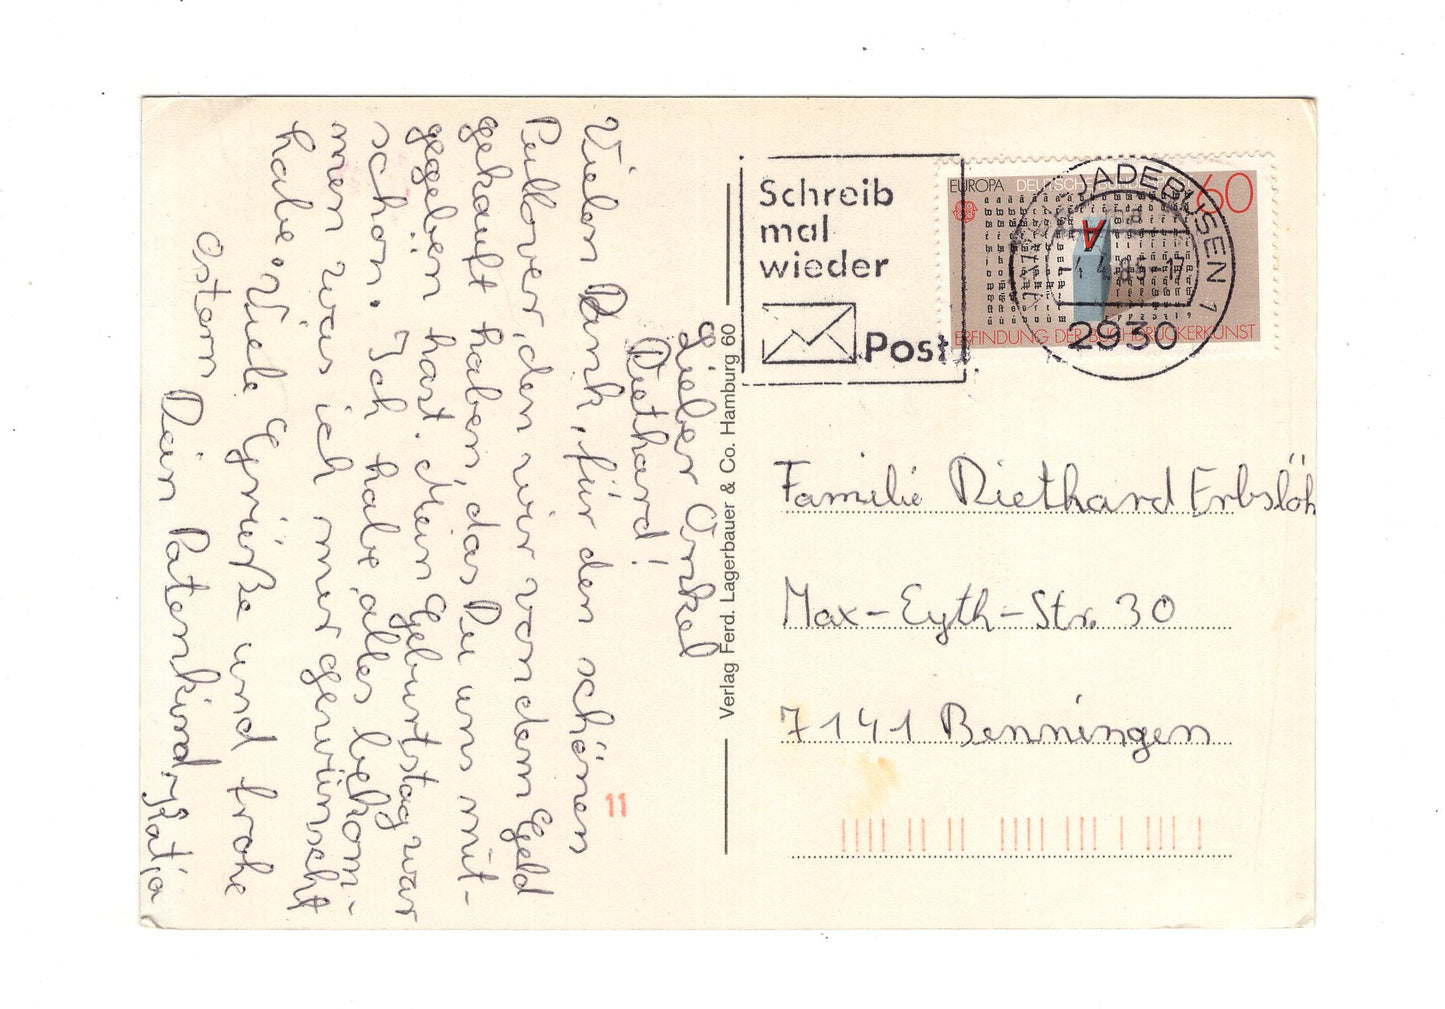 Lieber Onkel
Riethard!
Vielen Dank, für den schönen
Pullover, den wir von dem Geld
gekauft haben, das Du uns mit-
gegeben hast. Mein Geburtstag war
schön. Ich habe alles bekom-
men was ich mir gewünscht
habe. Viele Grüße und frohe
Ostern Dein Patenkind, Katja
Verlag Ferd. Lagerbauer & Co. Hamburg 60
11
Schreib
mal
wieder
Post
EUROPA DEUTSCHE BUNDESPOST 60
A
ERFINDUNG DER BUCHDRUCKERKUNST
JADEBUSEN 1
-4.4.85-17
2930
Familie Riethard Erbslöh
Max-Eyth-Str. 30
7141 Benningen